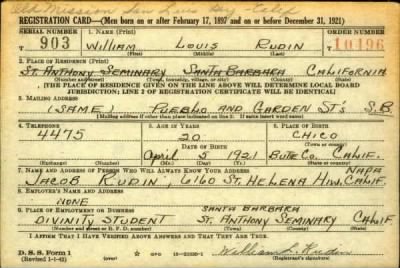 Old Mission San Luis Rey Calif.
REGISTRATION CARD—(Men born on or after February 17, 1897 and on or before December 31, 1921)
SERIAL NUMBER 1. NAME (Print) ORDER NUMBER
T 903 WILLIAM LOUIS RUDIN 10496
(First) (Middle) (Last)
2. PLACE OF RESIDENCE (Print)
ST. ANTHONY SEMINARY SANTA BARBARA CALIFORNIA
(Number and street) (Town, township, village, or city) (County) (State)
[THE PLACE OF RESIDENCE GIVEN ON THE LINE ABOVE WILL DETERMINE LOCAL BOARD
JURISDICTION; LINE 2 OF REGISTRATION CERTIFICATE WILL BE IDENTICAL]
3. MAILING ADDRESS
(SAME) PUEBLO AND GARDEN ST'S S.B.
[Mailing address if other than place indicated on line 2. If same insert word same]
4. TELEPHONE 5. AGE IN YEARS 6. PLACE OF BIRTH
4475 20 CHICO
DATE OF BIRTH (Town or county)
April 5 1921 BUTE CO. CALIF.
(Exchange) (Number) (Mo.) (Day) (Yr.) (State or country)
7. NAME AND ADDRESS OF PERSON WHO WILL ALWAYS KNOW YOUR ADDRESS NAPA
JACOB RUDIN, 6160 ST. HELENA HIW, CALIF.
8. EMPLOYER'S NAME AND ADDRESS
NONE
9. PLACE OF EMPLOYMENT OR BUSINESS SANTA BARBARA
DIVINITY STUDENT ST. ANTHONY SEMINARY CALIF
(Number and street or R. F. D. number) (Town) (County) (State)
I AFFIRM THAT I HAVE VERIFIED ABOVE ANSWERS AND THAT THEY ARE TRUE.
D. S. S. Form 1
(Revised 1-1-42) GPO William L. Rudin